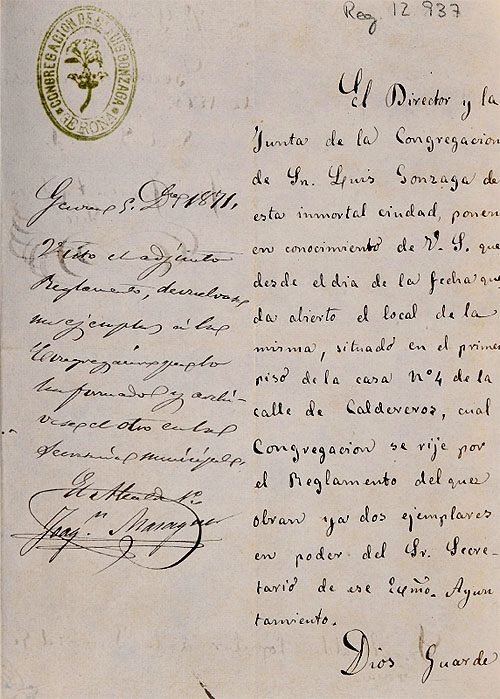 Reg 12 937
CONGREGACION DE S. LUIS GONZAGA
GERONA
El Director y la
Junta de la Congregacion
de Sn. Luis Gonzaga de
esta inmortal ciudad, ponen
en conocimiento de V. S. que
desde el dia de la fecha que
da abierto el local de la
misma, situado en el primer
piso de la casa Nº 4 de la
calle de Caldereros, cual
Congregacion se rije por
el Reglamento del que
obran ya dos ejemplares
en poder del Sr. Secre-
tario de ese Exmo. Ayun
tamiento.
Dios Guarde
Gerona 5. Dbre 1871,
Visto el adjunto
Reglamento, devuelvase
un ejemplar á la
Congregacion que lo
ha formado y archi-
vese el otro en la
Secretaria municipal.
El Alcalde 1º
Joaqn